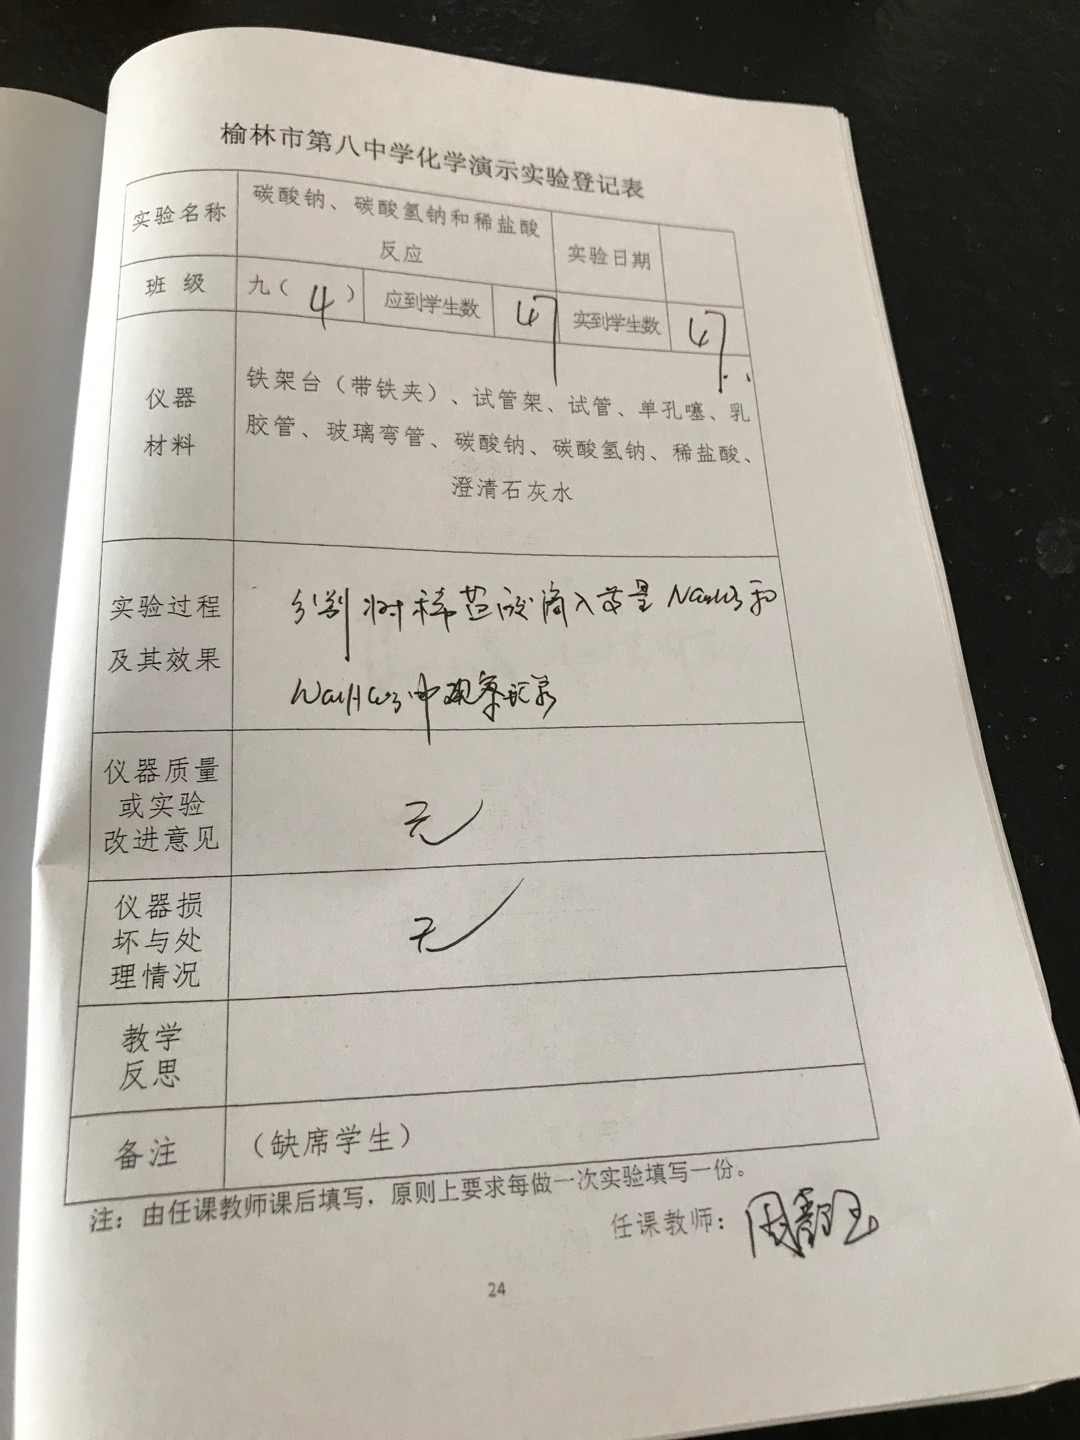 榆林市第八中学化学演示实验登记表
实验名称
碳酸钠、碳酸氢钠和稀盐酸
反应
实验日期
班 级
九（4）
应到学生数
47
实到学生数
47
仪器
材料
铁架台（带铁夹）、试管架、试管、单孔噻、乳
胶管、玻璃弯管、碳酸钠、碳酸氢钠、稀盐酸、
澄清石灰水
实验过程
及其效果
分别将稀盐酸滴入等量Na2CO3和
NaHCO3中观察记录
仪器质量
或实验
改进意见
无
仪器损
坏与处
理情况
无
教学
反思
备注
（缺席学生）
注：由任课教师课后填写，原则上要求每做一次实验填写一份。
任课教师：
24